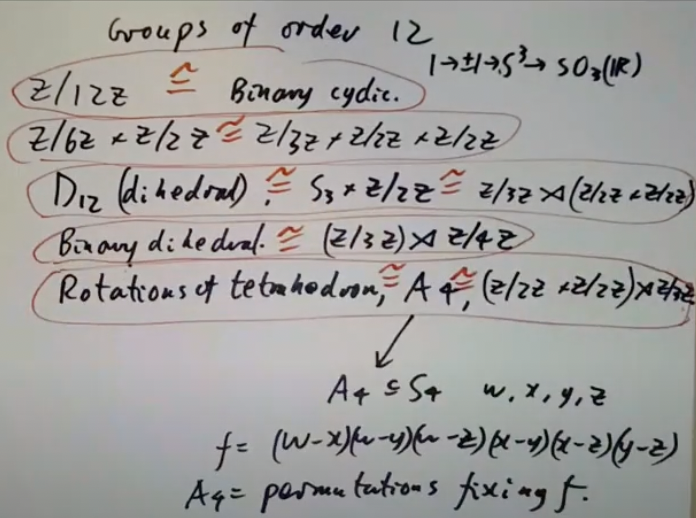 Groups of order 12
1→±1→S³→SO₃(ℝ)
Z/12Z ≅ Binary cyclic.
Z/6Z × Z/2Z ≅ Z/3Z × Z/2Z × Z/2Z
D₁₂ (dihedral), ≅ S₃ × Z/2Z ≅ Z/3Z ⋊ (Z/2Z × Z/2Z)
Binary dihedral. ≅ (Z/3Z) ⋊ Z/4Z
Rotations of tetrahedron, ≅ A₄ ≅, (Z/2Z × Z/2Z) ⋊ Z/3Z
A₄ ⊆ S₄ w, x, y, z
f = (w-x)(w-y)(w-z)(x-y)(x-z)(y-z)
A₄ = permutations fixing f.